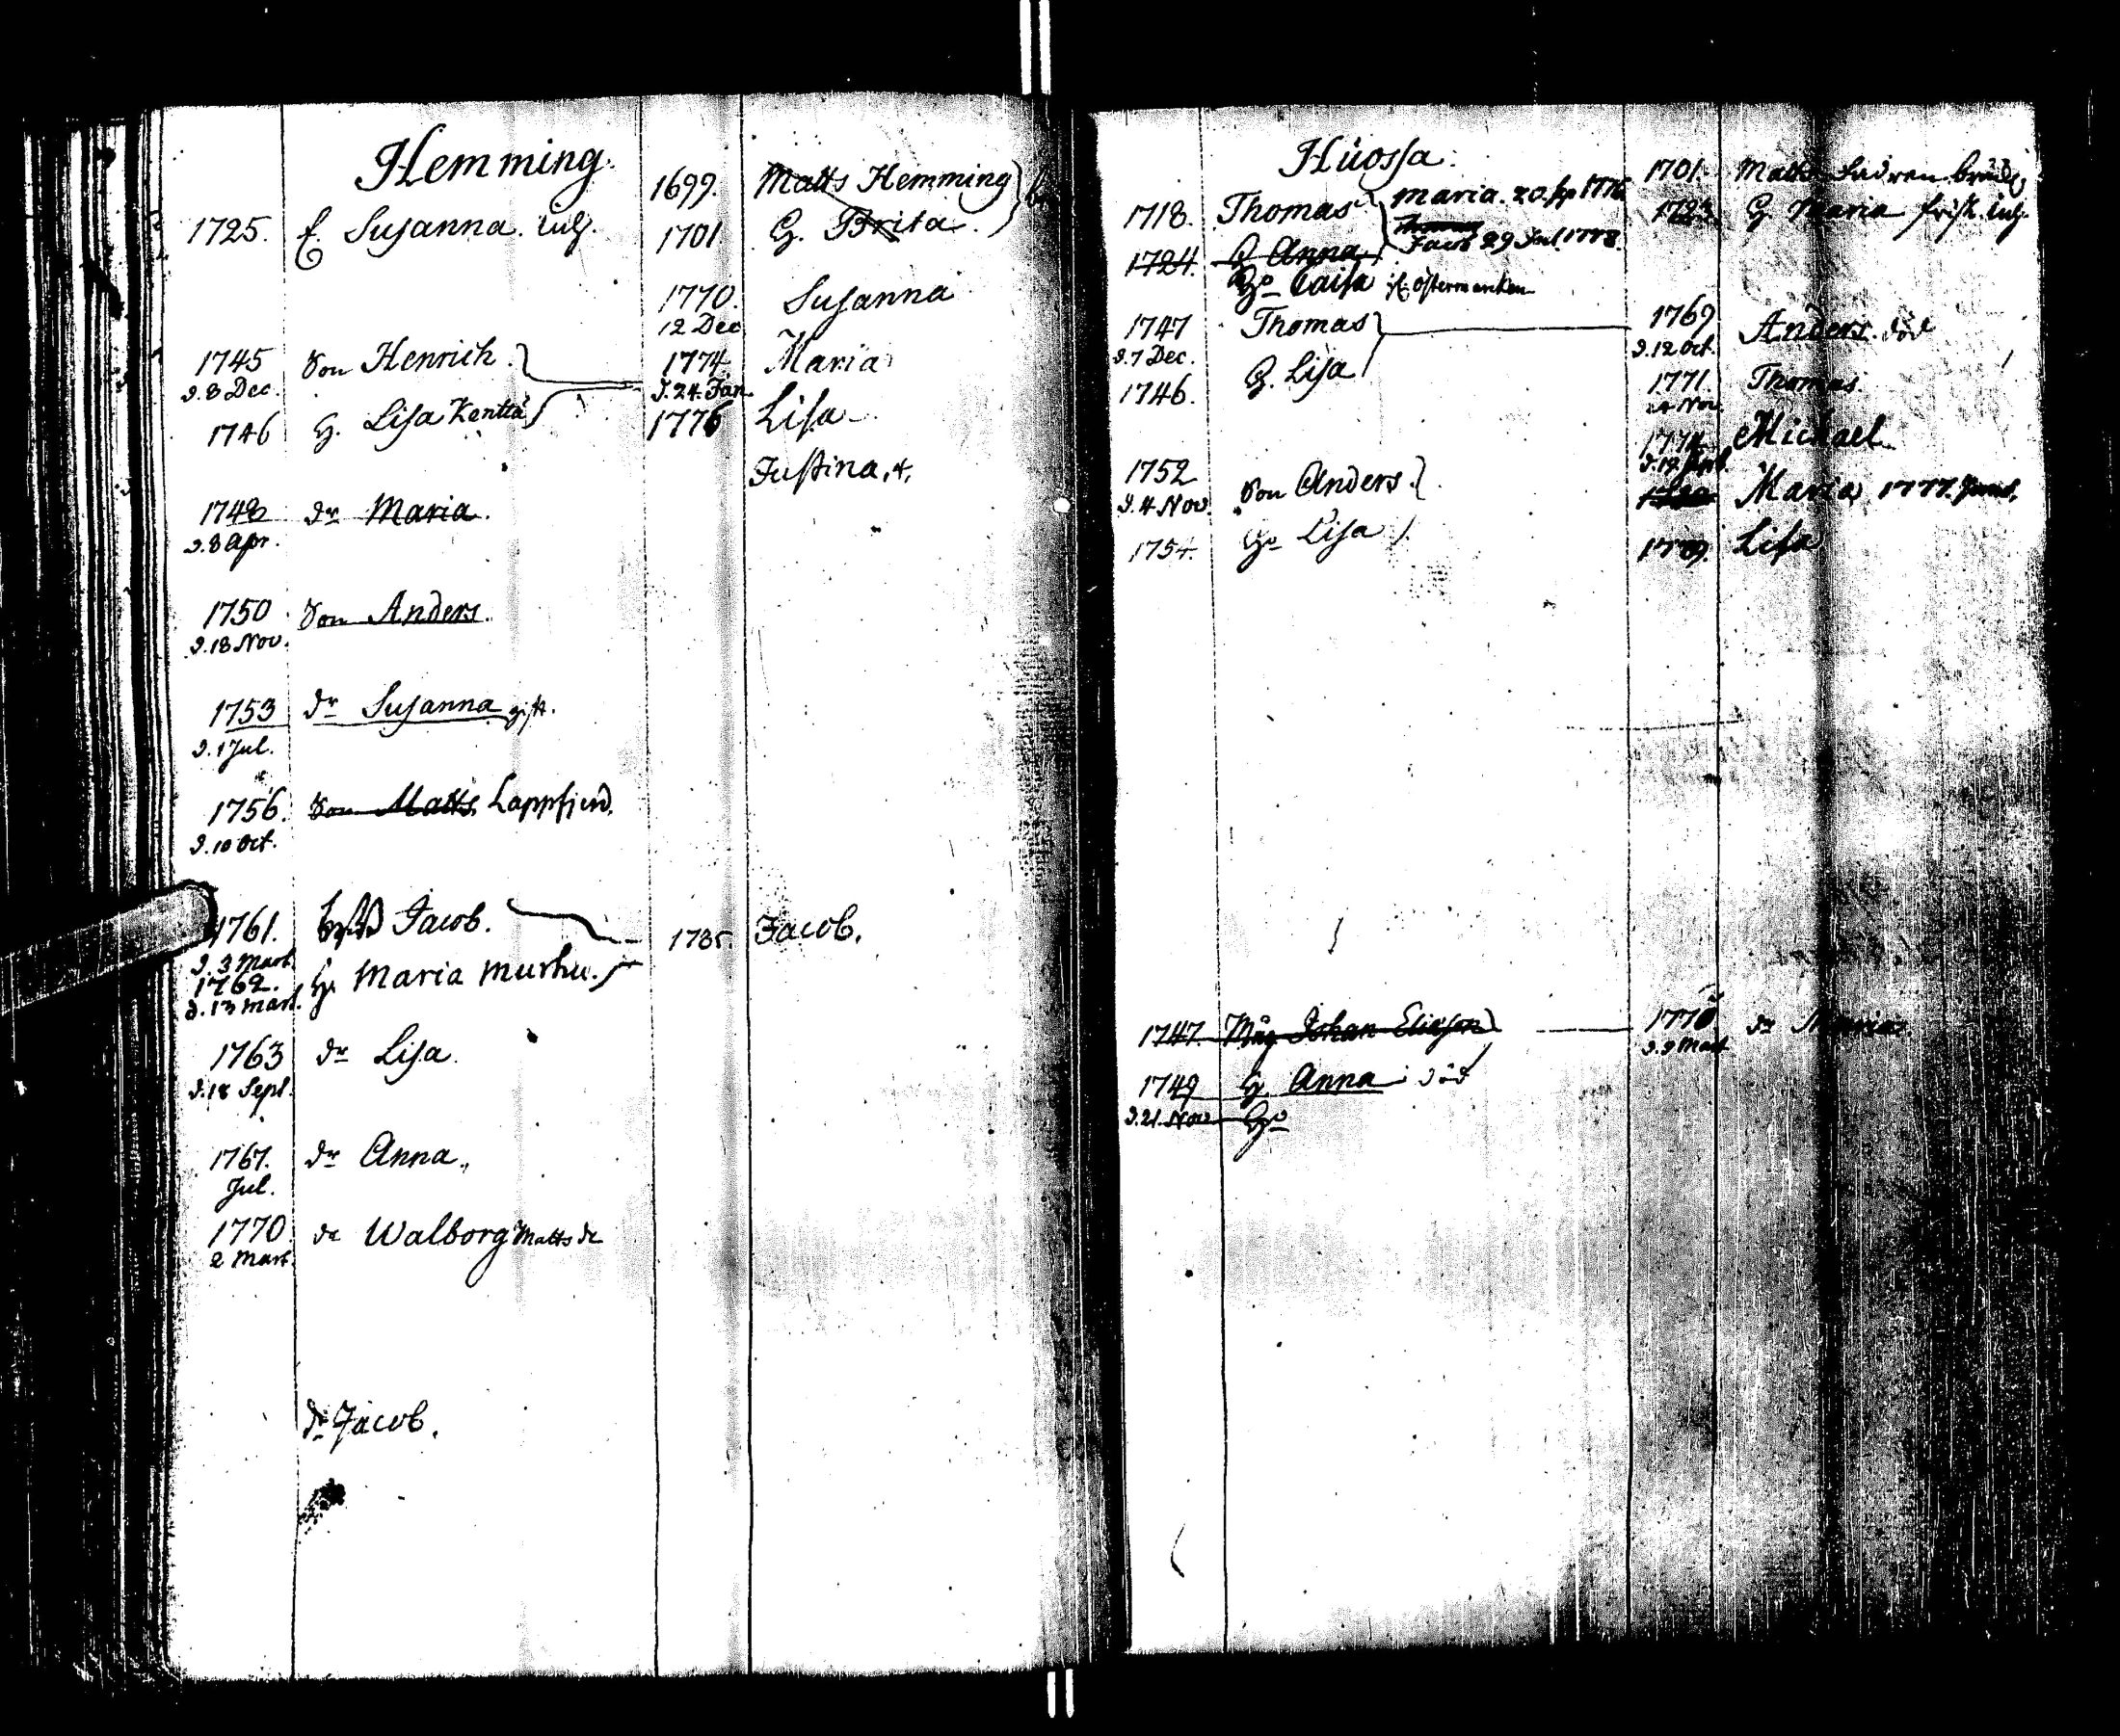 Hemming.
1699. Matts Hemming
1725. E. Susanna. Enk.
1701 H. Brita.
1770. Susanna
12 Dec
1745 Son Henrich. 1774 Maria
d. 8 Dec. d. 24. Jan.
1746 H. Lisa Kenttä 1776 Lisa
Justina. +.
1748 dr Maria.
d. 8 Apr.
1750 Son Anders.
d. 18 Nov.
1753 dr Susanna gift.
d. 1 Jul.
1756. Son Matts. Lappfjerd.
d. 10 Oct.
1761. Jacob. 1785. Jacob.
d. 3 Mart
1762. H. Maria Murhu.
d. 13 Mart.
1763 dr Lisa.
d. 18 Sept.
1767. dr Anna.
Jul.
1770 dr Walborg Matts dr
2 Mart.
dr Jacob.
Huossa.
1701. Matts
1718. Thomas Maria. 20. 1776
H Maria Enk.
Thomas
Jacob 29 Jul. 1778.
1724. H Anna
Ho Caisa Östermarken
1747 Thomas 1769 Anders. död
d. 7 Dec. d. 12 Oct.
1746. H. Lisa 1771. Thomas
24 Nov.
1774 Michael
1752 Son Anders. Maria 1777.
d. 4 Nov.
1754. Ho Lisa Lisa
1747. Måg Johan Elieson 1770 dr Maria
d. 9 Mart
1749 H. Anna död
d. 21. Nov Ho